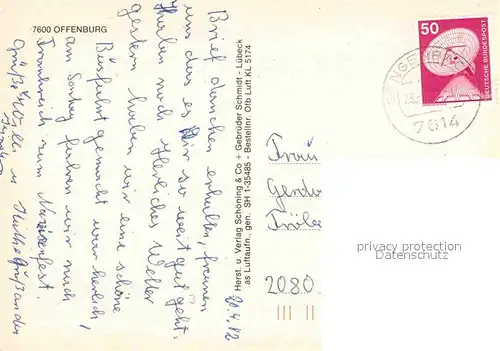 7600 OFFENBURG
Brief dankend erhalten, freuen
uns das es Dir so weit gut geht.
Haben noch Herrliches Wetter
gestern haben wir eine schöne
Busfahrt gemacht war herrlich,
am Sontag fahren wir nach
Frankreich zum Narzissenfest.
Grüße
Herst. u. Verlag Schöning & Co + Gebrüder Schmidt - Lübeck
as Luftaufn., gen. SH 1-35485 - Bestellnr. Ofb Luft KL 5174
20.4.82
50
DEUTSCHE BUNDESPOST
7614
Frau
2080
privacy protection
Datenschutz